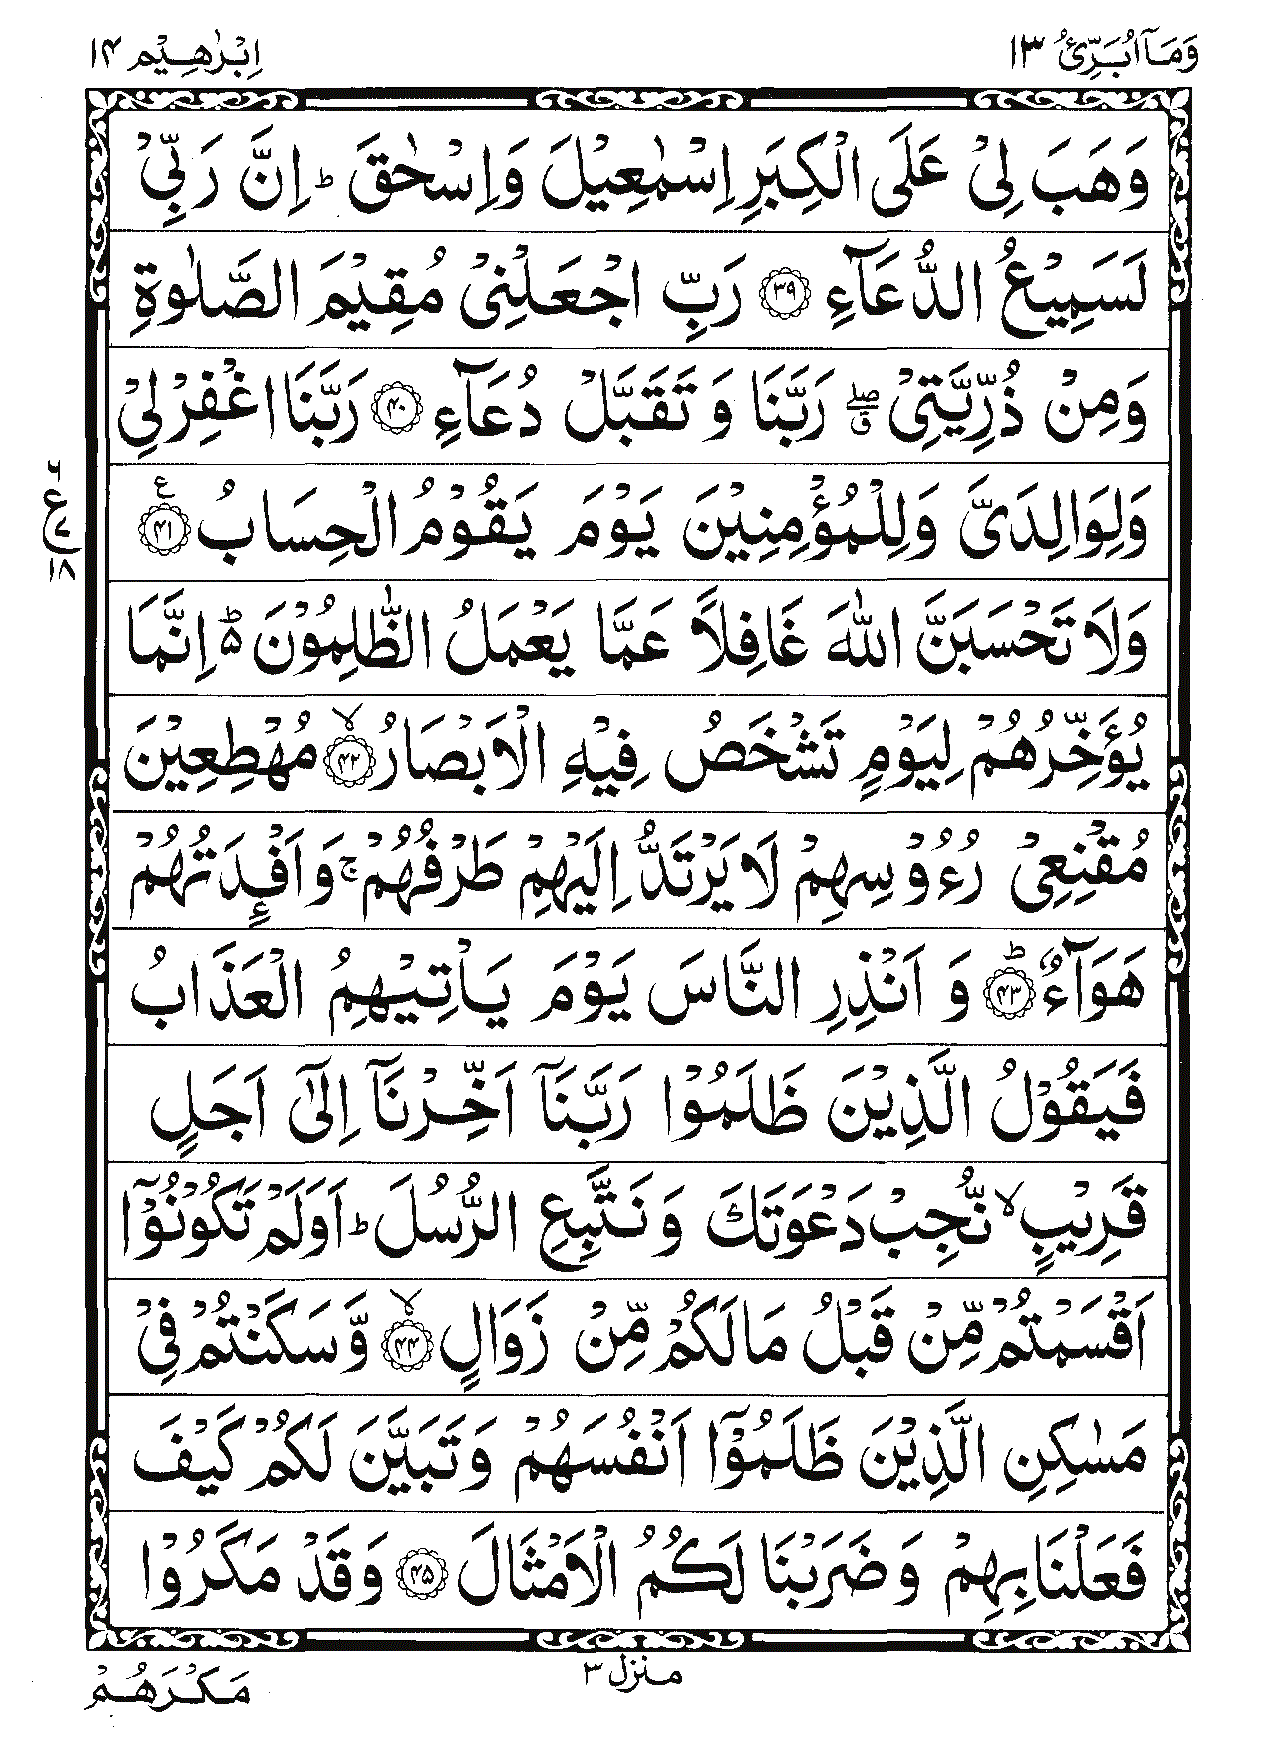 وَمَاۤ اُبَرِّئُ ۱۳
اِبْرٰهِیْم ۱۴
وَهَبَ لِیْ عَلَی الْكِبَرِ اِسْمٰعِیْلَ وَاِسْحٰقَ ؕ اِنَّ رَبِّیْ
لَسَمِیْعُ الدُّعَآءِ ﴿۳۹﴾ رَبِّ اجْعَلْنِیْ مُقِیْمَ الصَّلٰوةِ
وَمِنْ ذُرِّیَّتِیْ ۖۗ رَبَّنَا وَ تَقَبَّلْ دُعَآءِ ﴿۴۰﴾ رَبَّنَا اغْفِرْ لِیْ
وَلِوَالِدَیَّ وَلِلْمُؤْمِنِیْنَ یَوْمَ یَقُوْمُ الْحِسَابُ ﴿۴۱﴾ ع
۶
ع
۷
۱۸
وَلَا تَحْسَبَنَّ اللّٰهَ غَافِلًا عَمَّا یَعْمَلُ الظّٰلِمُوْنَ ۬ؕ اِنَّمَا
یُؤَخِّرُهُمْ لِیَوْمٍ تَشْخَصُ فِیْهِ الْاَبْصَارُ ﴿۴۲﴾ ۙ مُهْطِعِیْنَ
مُقْنِعِیْ رُءُوْسِهِمْ لَا یَرْتَدُّ اِلَیْهِمْ طَرْفُهُمْ ۚ وَاَفْـِٕدَتُهُمْ
هَوَآءٌ ﴿۴۳﴾ ؕ وَ اَنْذِرِ النَّاسَ یَوْمَ یَاْتِیْهِمُ الْعَذَابُ
فَیَقُوْلُ الَّذِیْنَ ظَلَمُوْا رَبَّنَاۤ اَخِّرْنَاۤ اِلٰۤی اَجَلٍ
قَرِیْبٍ ۙ نُّجِبْ دَعْوَتَكَ وَ نَتَّبِعِ الرُّسُلَ ؕ اَوَلَمْ تَكُوْنُوْۤا
اَقْسَمْتُمْ مِّنْ قَبْلُ مَا لَكُمْ مِّنْ زَوَالٍ ﴿۴۴﴾ ۙ وَّسَكَنْتُمْ فِیْ
مَسٰكِنِ الَّذِیْنَ ظَلَمُوْۤا اَنْفُسَهُمْ وَتَبَیَّنَ لَكُمْ كَیْفَ
فَعَلْنَا بِهِمْ وَضَرَبْنَا لَكُمُ الْاَمْثَالَ ﴿۴۵﴾ وَقَدْ مَكَرُوْا
منزل ۳
مَكْرَهُمْ